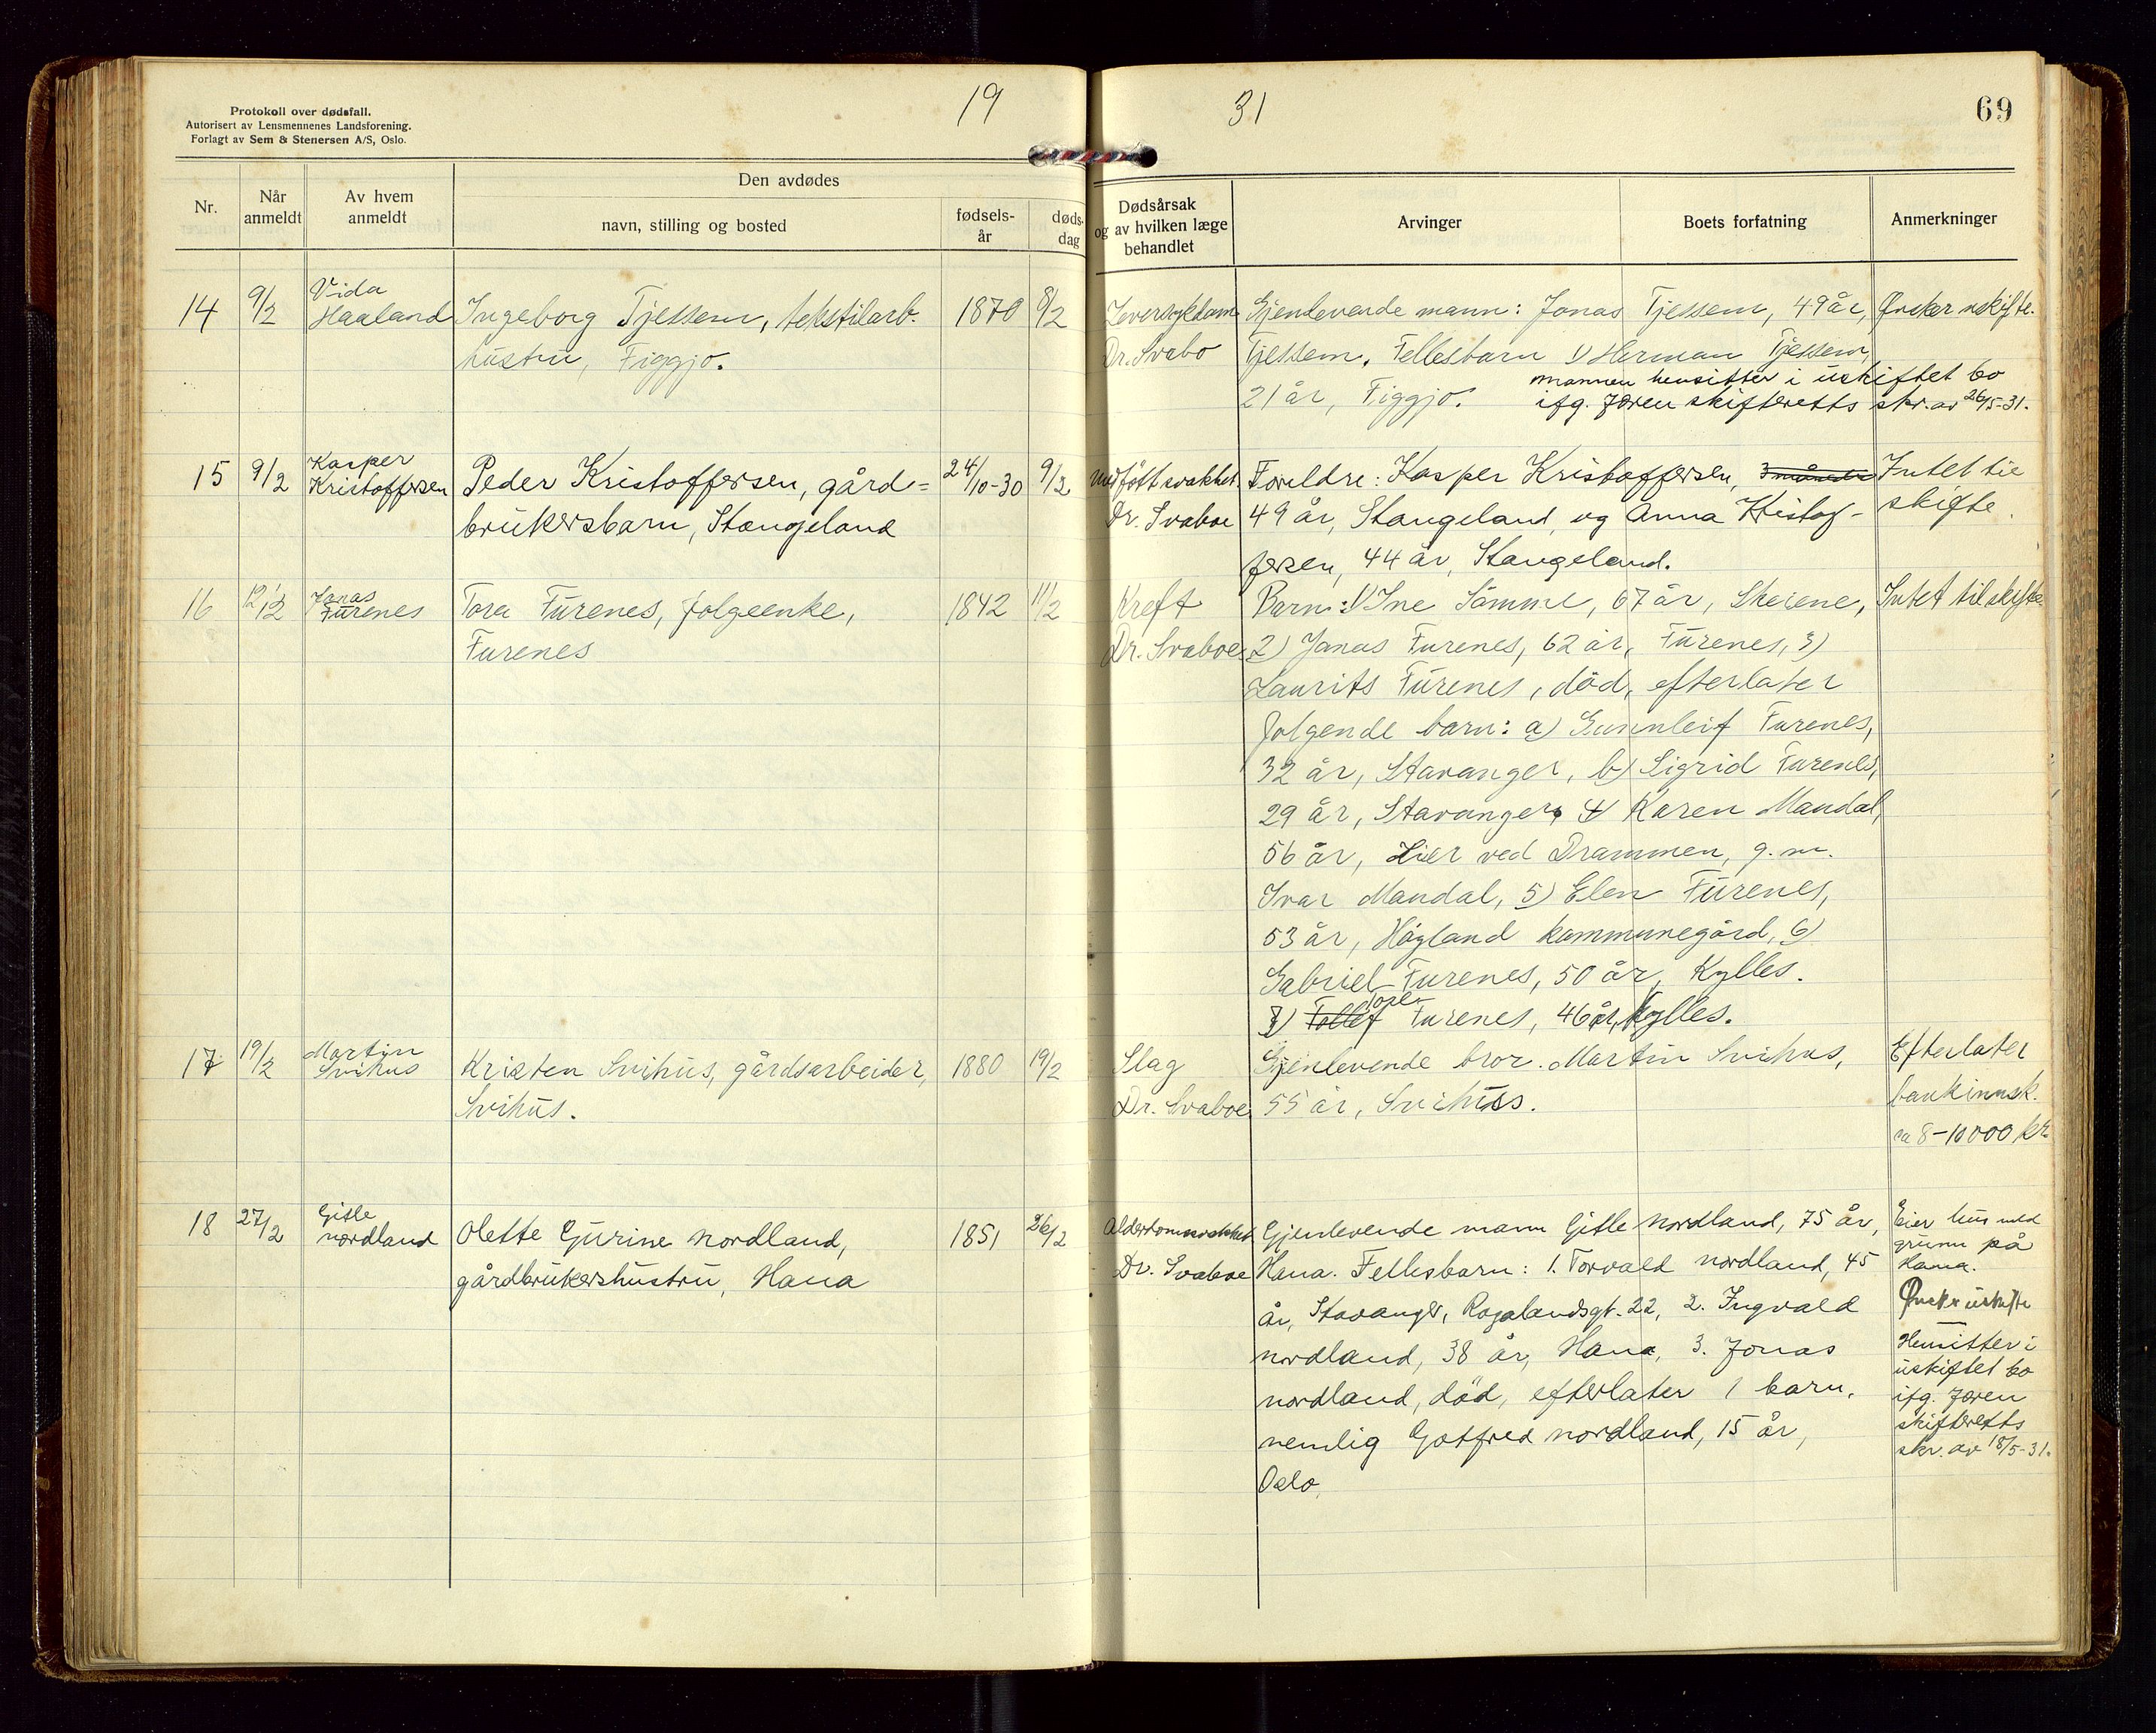 Protokoll over dødsfall.
Autorisert av Lensmennenes Landsforening.
Forlagt av Sem & Stenersen A/S, Oslo.
19
31
69
Nr.
Når anmeldt
Av hvem anmeldt
Den avdødes
navn, stilling og bosted
fødsels-år
døds-dag
Dødsårsak og av hvilken læge behandlet
Arvinger
Boets forfatning
Anmerkninger
14
9/2
Vida
Haaland
Ingeborg Tjessem, tekstilarb.
hustru, Figgjo.
1870
8/2
Leversykdom
Dr. Svabo
Gjenlevende mann: Jonas Tjessem, 49 år,
Tjessem. Fellesbarn 1) Herman Tjessem,
21 år, Figgjo.
mannen hensitter i uskiftet bo
ifg. Jæren skifteretts skr. av 26/5-31.
Ønsker uskifte.
15
9/2
Kasper
Kristoffersen
Peder Kristoffersen, gård=
brukersbarn, Stangeland
24/10-30
9/2
Medfött svakhet
Dr. Svaboe
Foreldre: Kasper Kristoffersen, 3 måneder
49 år, Stangeland, og Anna Kristof-
fersen, 44 år, Stangeland.
Intet til
skifte.
16
12/2
Jonas
Furenes
Tora Furenes, folgeenke,
Furenes
1842
11/2
Kreft
Dr. Svaboe
Barn: 1) Ine Sömme, 67 år, Skeiene,
2) Jonas Furenes, 62 år, Furenes, 3)
Laurits Furenes, död, efterlater
folgende barn: a) Gunnleif Furenes,
32 år, Stavanger, b) Sigrid Furenes,
29 år, Stavanger, 4) Karen Mandal,
56 år, Lier ved Drammen, g.m.
Ivar Mandal, 5) Elen Furenes,
53 år, Högland kommunegård, 6)
Gabriel Furenes, 50 år, Kylles.
7) Tollef Furenes, 46 år, Kylles.
Intet til skifte.
17
19/2
Martin
Svihus
Kristen Svihus, gårdsarbeider,
Svihus.
1880
19/2
Slag
Dr. Svaboe
Gjenlevende bror. Martin Svihus,
55 år, Svihus.
Efterlater
bankinnsk.
ca 8-10000 kr.
18
27/2
Gitle
Nordland
Olette Gurine Nordland,
gårdbrukershustru, Hana
1851
26/2
Alderdomssvakhet
Dr. Svaboe
Gjenlevende mann Gitle Nordland, 75 år,
Hana. Fellesbarn: 1. Torvald Nordland, 45
år, Stavanger, Rogalandsgt. 22, 2. Ingvald
Nordland, 38 år, Hana, 3. Jonas
Nordland, död, efterlater 1 barn,
nemlig Gotfred Nordland, 15 år,
Oslo.
Eier hus med
grunn på
Hana.
Ønsker uskifte
Hensitter i
uskiftet bo
ifg. Jæren
skifteretts
skr. av 18/5-31.